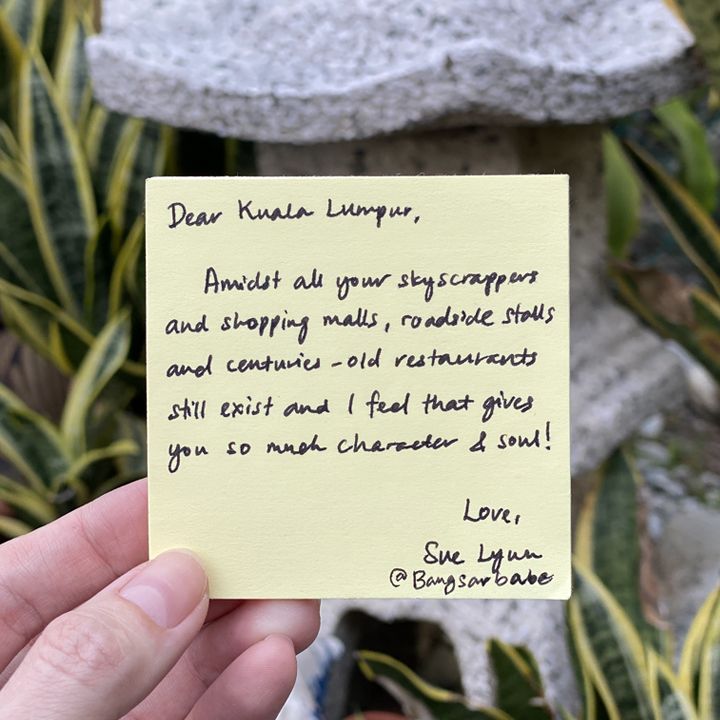 Dear Kuala Lumpur,
Amidst all your skyscrappers
and shopping malls, roadside stalls
and centuries-old restaurants
still exist and I feel that gives
you so much character & soul!
Love,
Sue Lynn
@Bangsarbabe